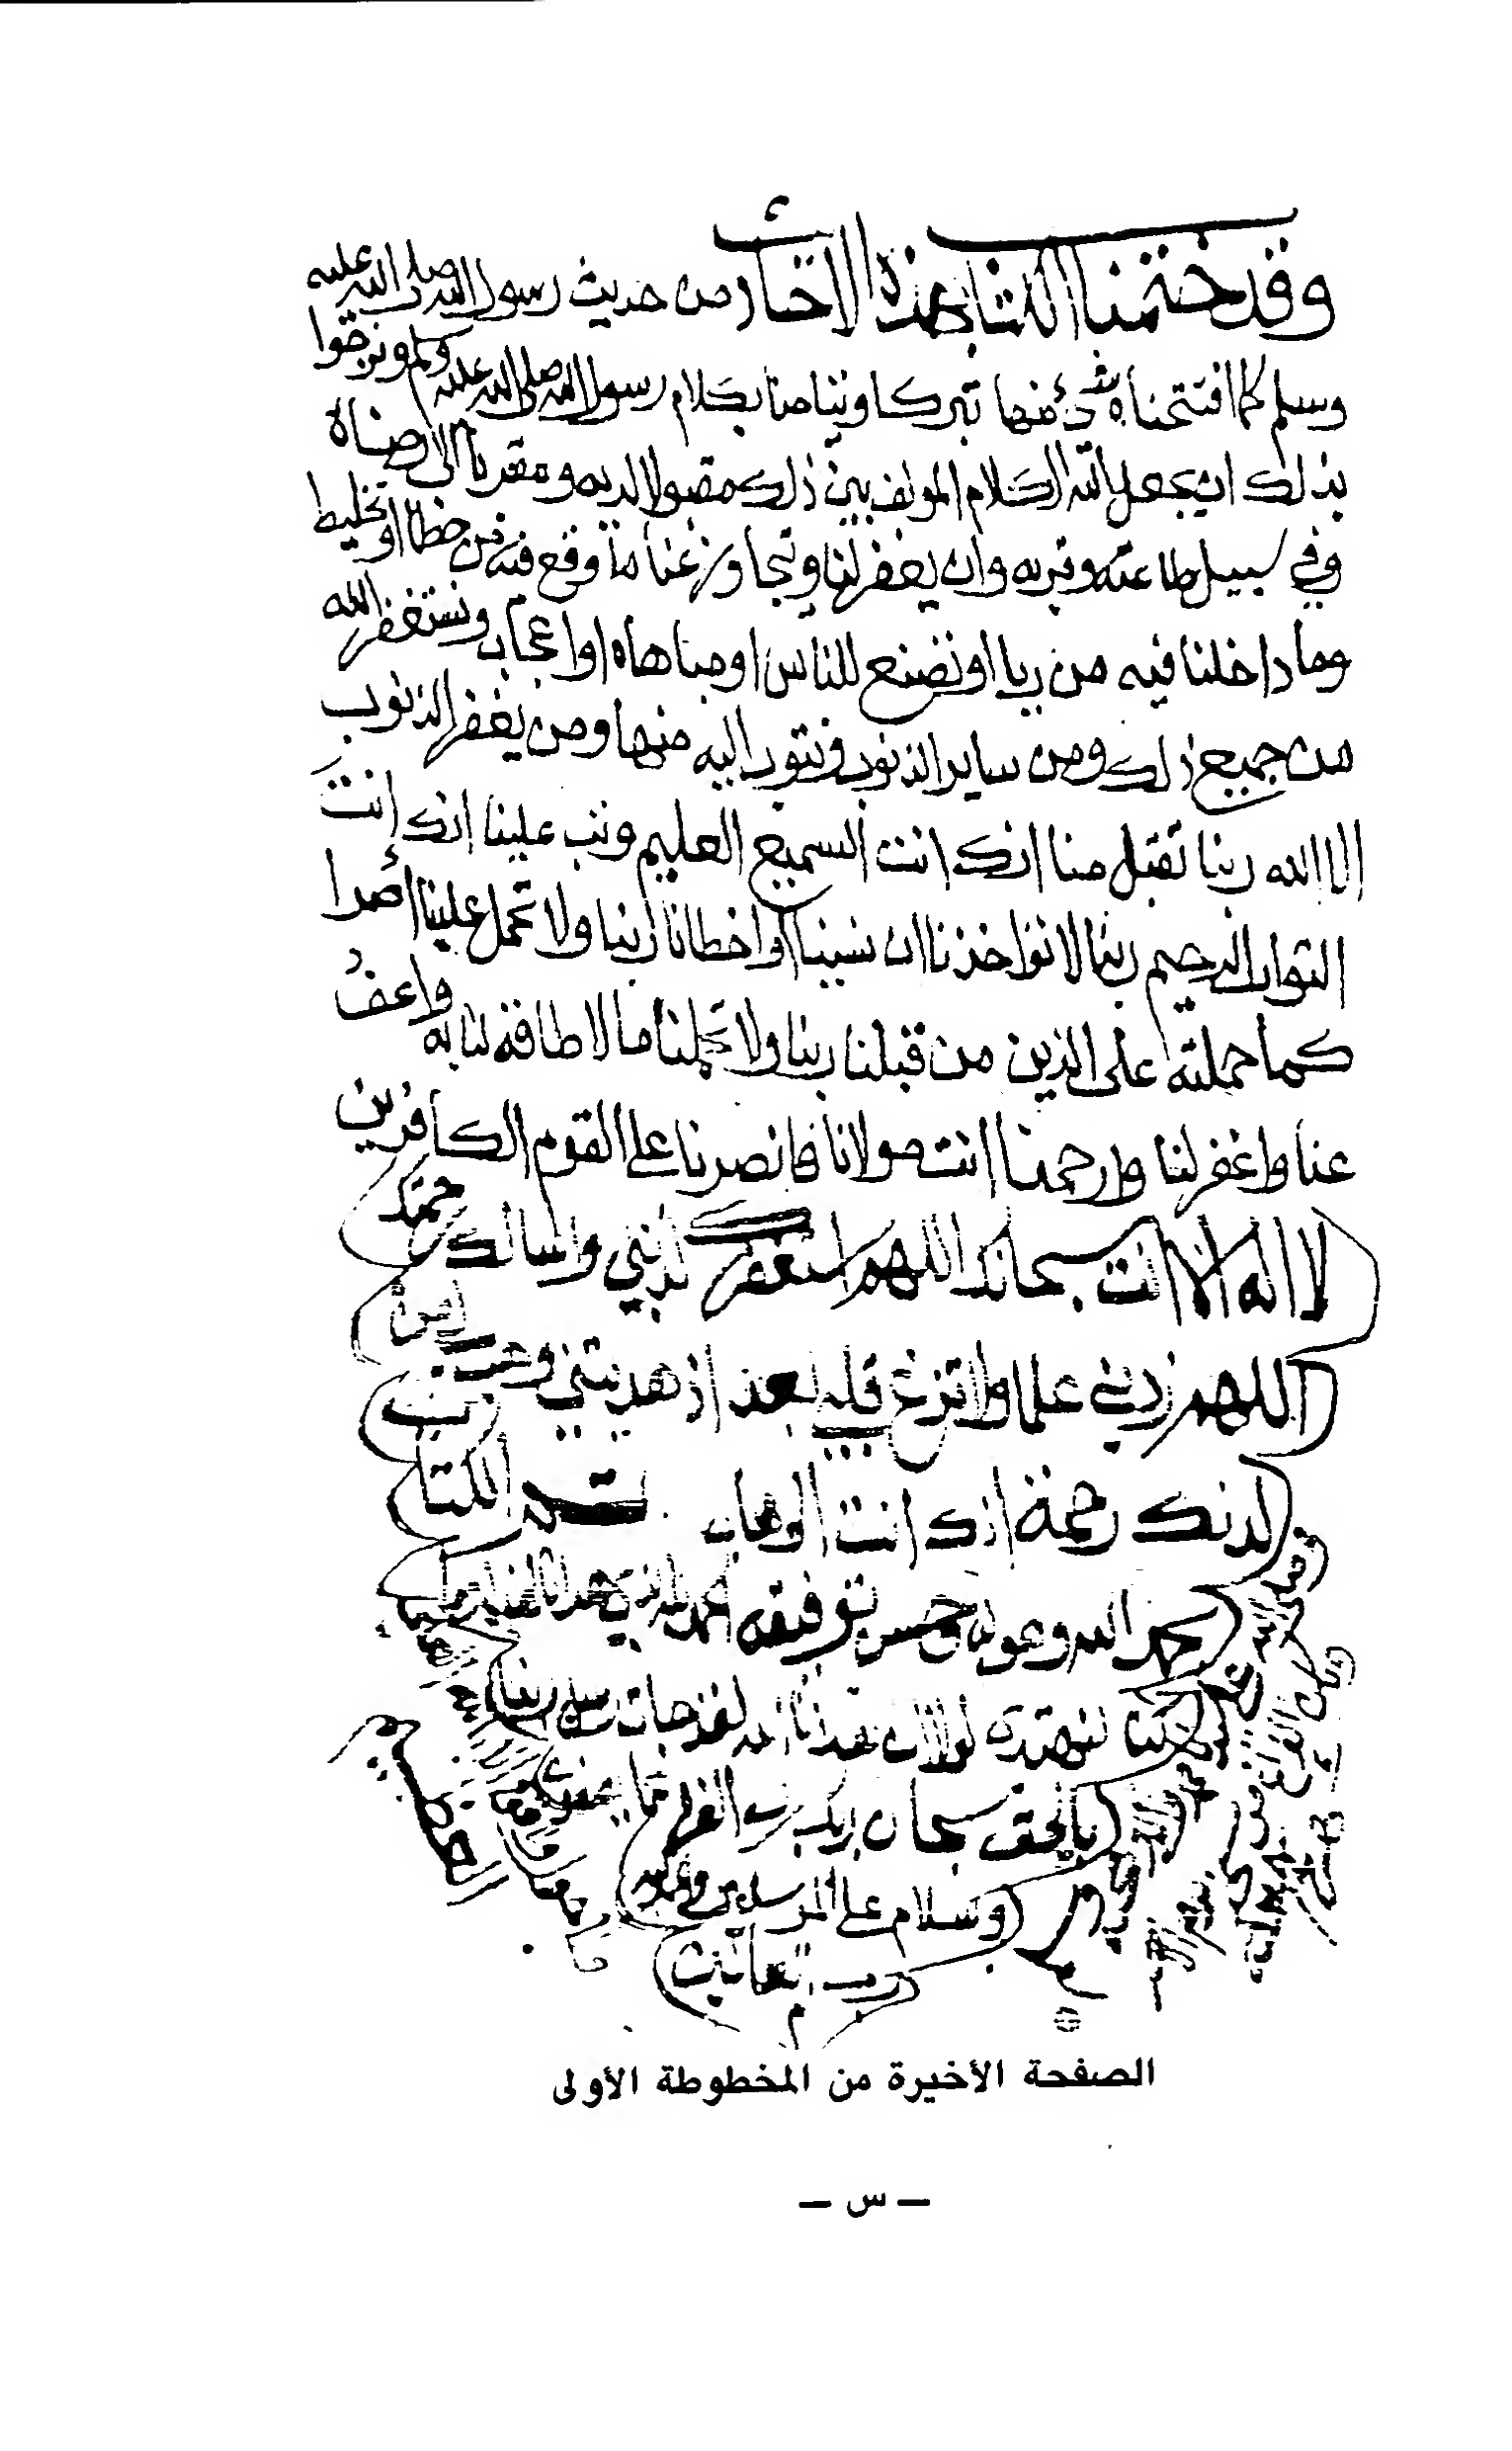 وقد ختمنا الكتاب بهذه الاخبار من حديث رسول الله صلى الله عليه
وسلم كما افتتحناه بشىء منها تبركا وتيامنا بكلام رسول الله صلى الله عليه وسلم ونرجوا
بذلك ان يجعل الله الكلام المولف بين ذلك مقبولا لديه ومقربا الى رضاه
وفي سبيل طاعته وقربه وان يغفر لنا ويتجاوز عنا ما وقع فيه من خطا او تخليط
وما داخلنا فيه من ريا او تصنع للناس او مباهاه او اعجاب ونستغفر الله
من جميع ذلك ومن ساير الذنوب ونتوب اليه منها ومن يغفر الذنوب
الا الله ربنا تقبل منا انك انت السميع العليم وتب علينا انك انت
التواب الرحيم ربنا لا تواخذنا ان نسينا او اخطانا ربنا ولا تحمل علينا اصرا
كما حملته على الذين من قبلنا ربنا ولا تحملنا ما لا طاقة لنا به واعف
عنا واغفر لنا وارحمنا انت مولانا فانصرنا على القوم الكافرين
لا اله الا انت سبحانك اللهم استغفرك لذنبي واسالك رحمتك
اللهم زدني علما ولا تزغ قلبي بعد اذ هديتني وهب لي من
لدنك رحمة انك انت الوهاب تم الكتاب
بحمد الله وعونه وحسن توفيقه الحمد لله الذي هدانا لهذا وما
كنا لنهتدي لولا ان هدانا الله لقد جات رسل ربنا
بالحق سبحان ربك رب العزة عما يصفون
وسلام على المرسلين والحمد لله
رب العالمين
الصفحة الأخيرة من المخطوطة الأولى
— س —